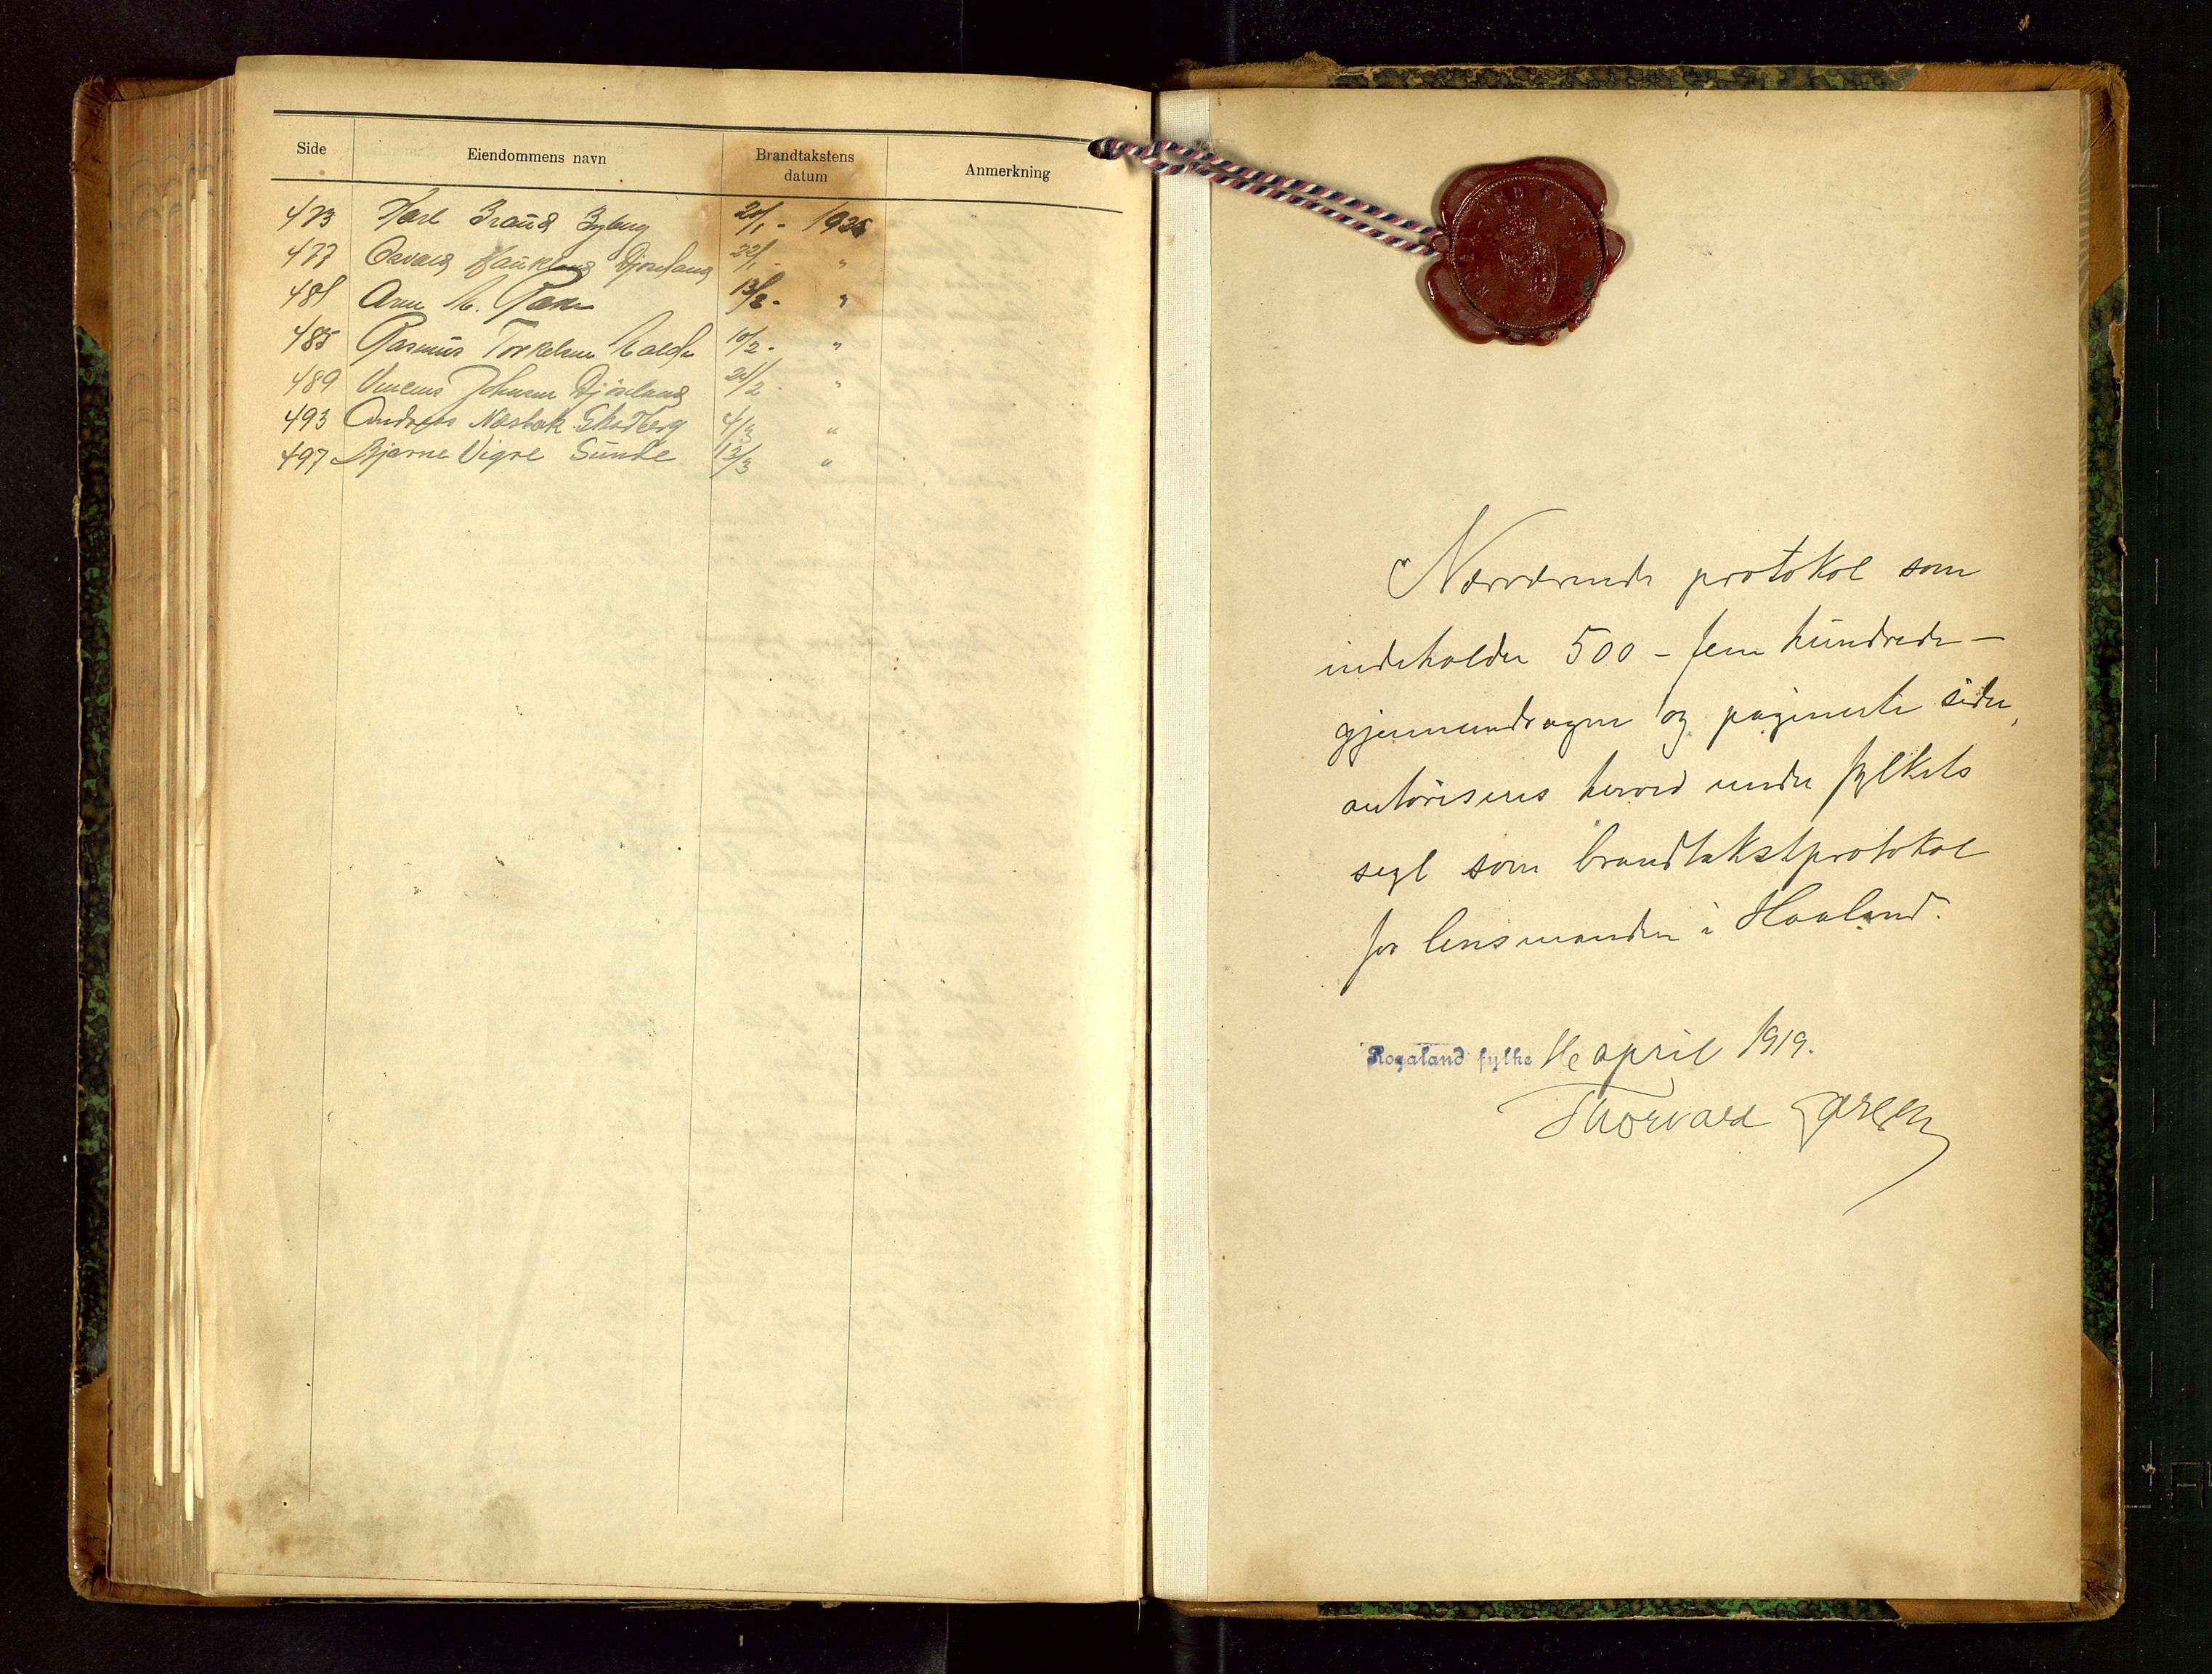 Side Eiendommens navn Brandtakstens datum Anmerkning
473 Karl Braud 20/1 - 1926
477 Osvald Haukland Djøseland 22/1 - "
481 Arne 13/2 - "
485 Rasmus Torkelsen 10/2 - "
489 Johann Djøseland 24/2 - "
493 Andreas Næsbak Skadberg 4/3 "
497 Bjarne Vigre Sunde 13/3 "
ROGALAND FYLKE
Nærværende protokol som
indeholder 500 - fem hundrede -
gjennemdragne og paginerte sider,
autoriseres herved under fylkets
segl som brandtakstprotokol
for lensmanden i Haaland.
Rogaland fylke 16 april 1919.
Thorvald Larsen